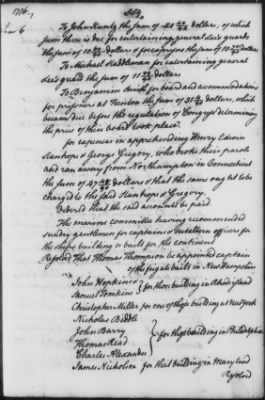 1776.
To John Kunty the sum of dollars, of which
sum there is due for entertaining general Lee's guards
the sum of 10 dollars & for expresses the sum of 10 dollars
To Michael Waddleman for entertaining general
Lee's guard the sum of 11 dollars
To Benjamin Smith for board and accommodations
for prisoners at Trenton the sum of 31 dollars, which
became due before the regulation of Congress determining
the price of their board took place.
for expences in apprehending Henry Edwin
Stanhope & George Gregory, who broke their parole
and ran away from Northampton in Connecticut
the sum of 27 dollars & that the same ought to be
charged to the said Stanhope & Gregory.
Ordered that the said accounts be paid.
The marine committee having recommended
sundry gentlemen for captains & battalion officers for
the ships building or built for the continent
Resolved that Thomas Thompson be appointed captain
of the frigate built in New Hampshire
John Hopkins
Samuel Tomkins } for those building in Rhode island
Christopher Miller for one of those building at New york
Nicholas Biddle
John Barry
Thomas Read
Charles Alexander } for those building in Philadelphia
James Nicholson for that building in Maryland
Resolved